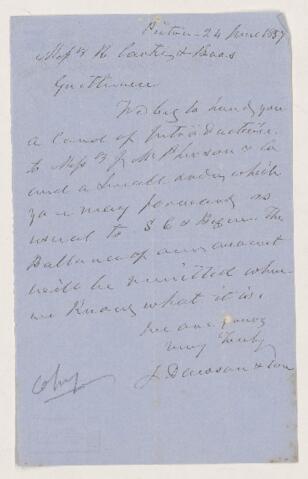 Pictou - 24 June 1857
Messrs R. & Bros
Gentlemen
We beg to hand you
a Card of Introduction
to Messrs J. McPherson & Co
and a Small order which
you may forward as
usual to S C &
Ballance of our account
will be remitted when
we Know what it is.
we are yours
very Truly
J Dawson & Son
Copy